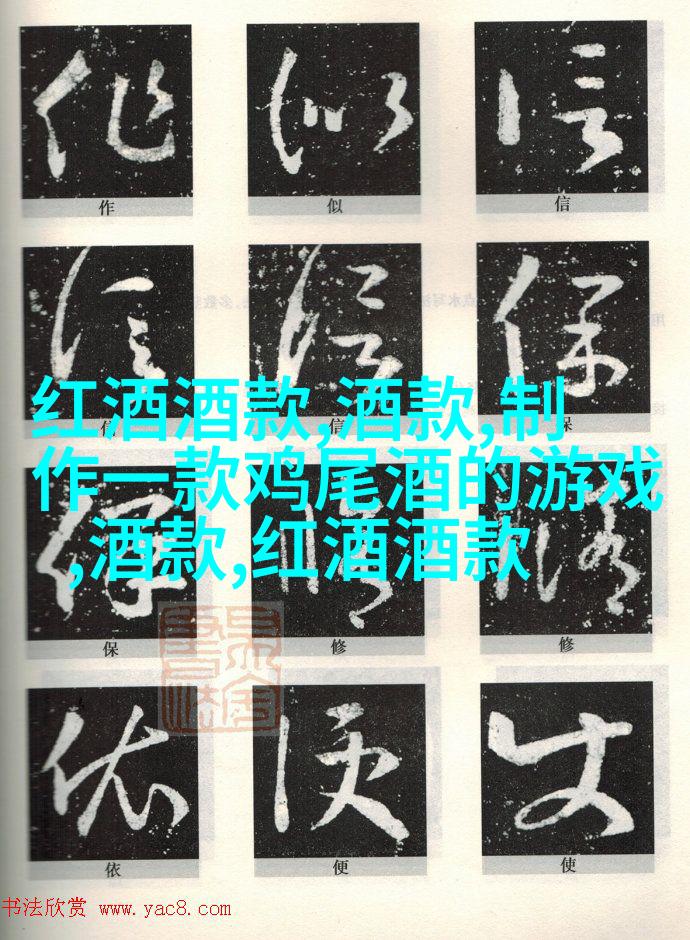 作 似 信
信 信 保
红酒酒款,酒款,制
作一款鸡尾酒的游戏
,酒款,红酒酒款
保 修 修
依 便 使
书法欣赏 www.yac8.com